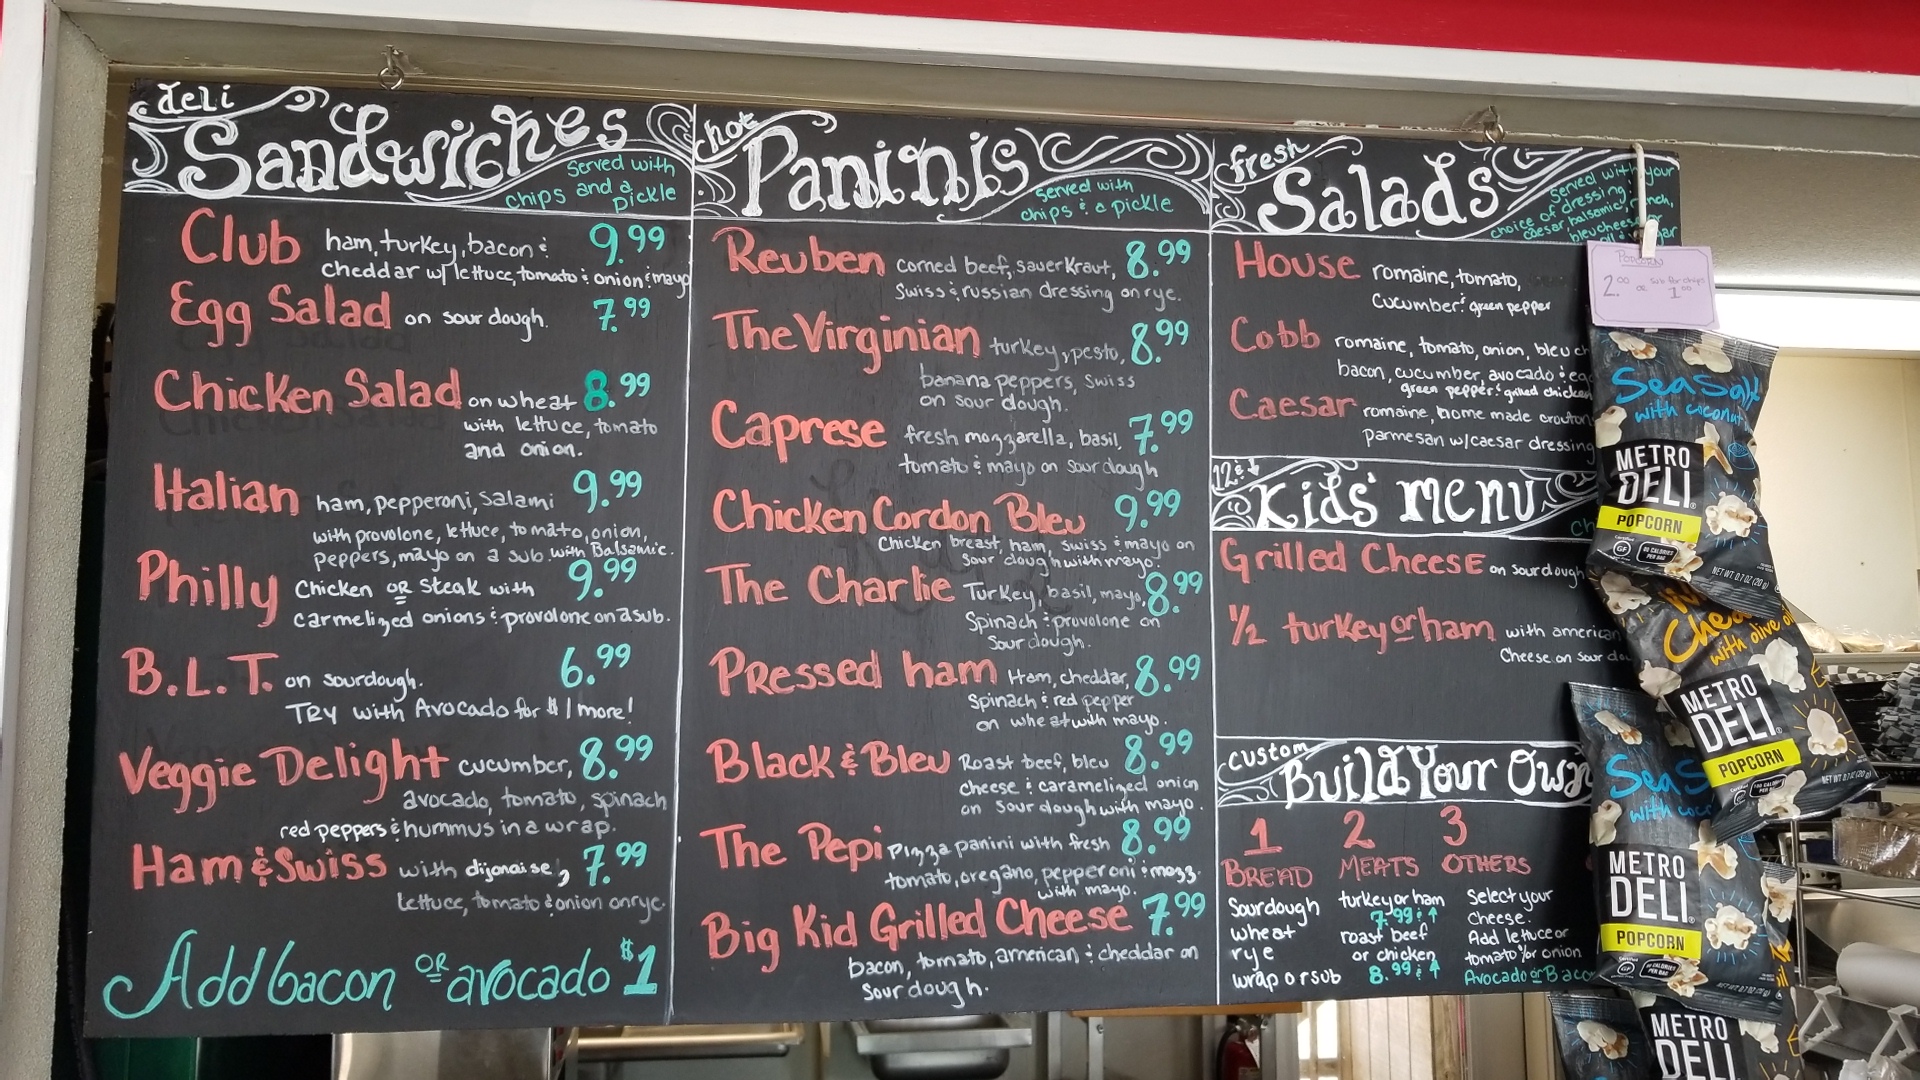 deli
Sandwiches
Served with
chips and a
pickle
Club ham, turkey, bacon & 9.99
cheddar w/ lettuce, tomato & onion & mayo
Egg Salad on sour dough. 7.99
Chicken Salad on wheat 8.99
with lettuce, tomato
and onion.
Italian ham, pepperoni, salami 9.99
with provolone, lettuce, tomato, onion,
peppers, mayo on a sub with Balsamic.
Philly Chicken OR Steak with 9.99
carmelized onions & provolone on a sub.
B.L.T. on sourdough. 6.99
TRY with Avocado for $1 more!
Veggie Delight cucumber, 8.99
avocado, tomato, spinach
red peppers & hummus in a wrap.
Ham & Swiss with dijonaise, 7.99
lettuce, tomato & onion on rye.
Add bacon OR avocado $1
hot
Paninis
served with
chips & a pickle
Reuben corned beef, sauerkraut, 8.99
Swiss & russian dressing on rye.
The Virginian turkey, pesto, 8.99
banana peppers, swiss
on sour dough.
Caprese fresh mozzarella, basil, 7.99
tomato & mayo on sour dough
Chicken Cordon Bleu 9.99
Chicken breast, ham, swiss & mayo on
sour dough with mayo.
The Charlie Turkey, basil, mayo, 8.99
Spinach & provolone on
Sour dough.
Pressed ham Ham, cheddar, 8.99
Spinach & red pepper
on wheat with mayo.
Black & Bleu Roast beef, bleu 8.99
cheese & caramelized onion
on sour dough with mayo.
The Pepi Pizza panini with fresh 8.99
tomato, oregano, pepperoni & mozz.
with mayo.
Big Kid Grilled Cheese 7.99
bacon, tomato, american & cheddar on
Sour dough.
fresh
Salads
Served with your
choice of dressing
caesar, balsamic, ranch,
bleu cheese or
House romaine, tomato,
cucumber & green pepper
Cobb romaine, tomato, onion, bleu
bacon, cucumber, avocado & egg
green pepper & grilled chicken
Caesar romaine, home made crouton
parmesan w/ caesar dressing
12 &
Kids' Menu
Grilled Cheese on sourdough
1/2 turkey or ham with american
Cheese on sour
custom
Build Your Own
1 2 3
BREAD MEATS OTHERS
Sourdough
wheat
rye
wrap or sub
turkey or ham
7.99 & ↑
roast beef
or chicken
8.99 & ↑
Select your
Cheese.
Add lettuce or
tomato %or onion
Avocado or Bacon
POPCORN
2.00 or sub for chips
1.00
Sea Salt
with coconut
METRO
DELI
POPCORN
80 CALORIES
PER BAG
NET WT. 0.7 OZ (20 g)
with olive oil
METRO
DELI
POPCORN
Sea S
with coc
METRO
DELI
POPCORN
METRO
DELI